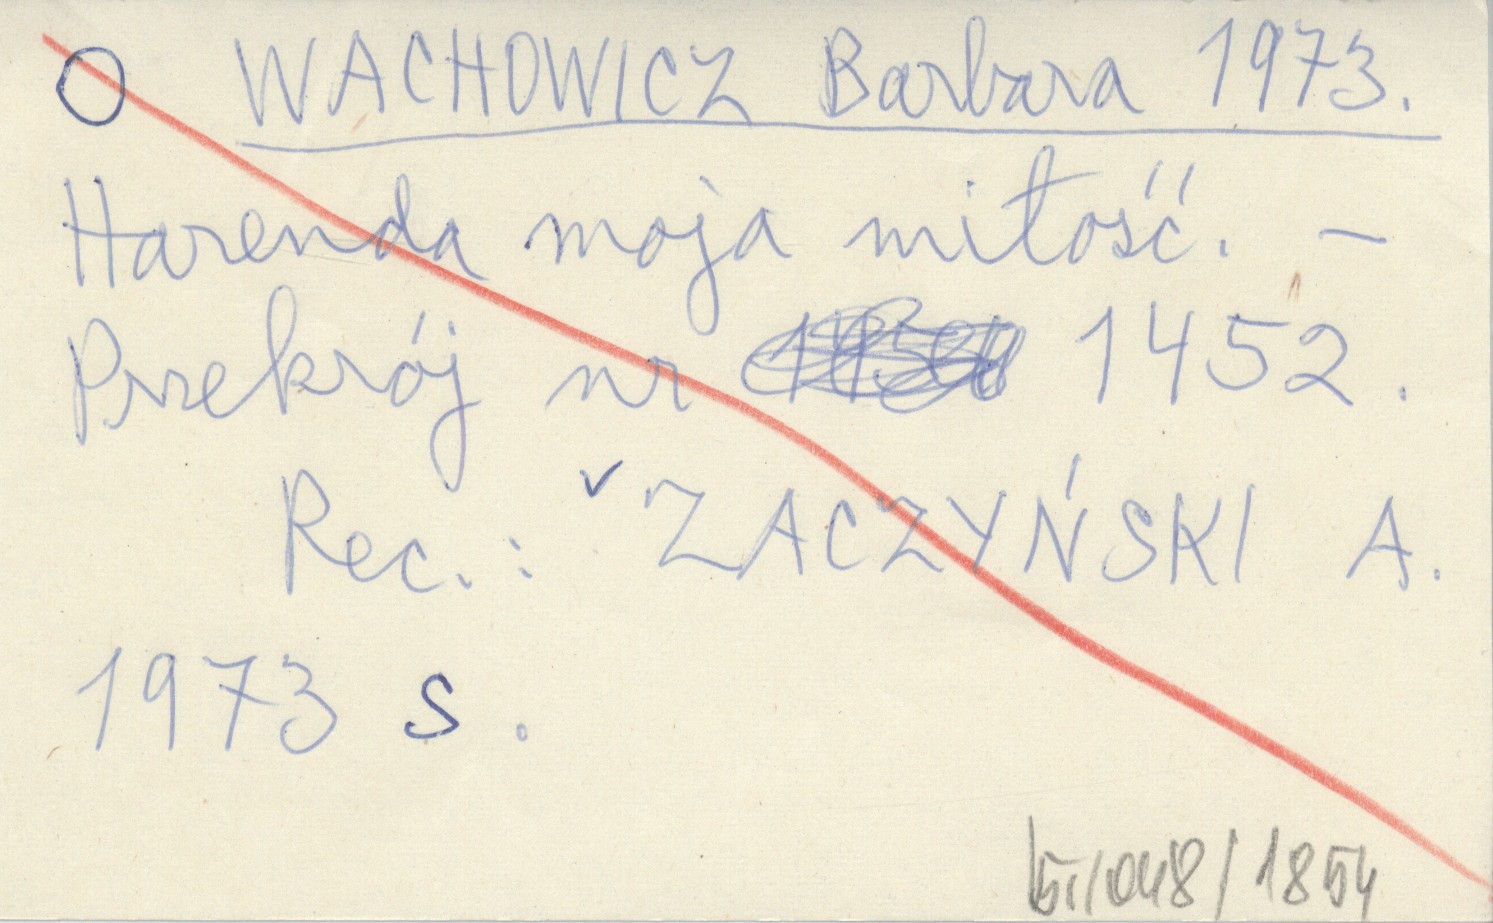 O WACHOWICZ Barbara 1973.
Harenda moja miłość. –
Przekrój nr 1452.
Rec.: ✓ ZACZYŃSKI A.
1973 s.
/048/1854